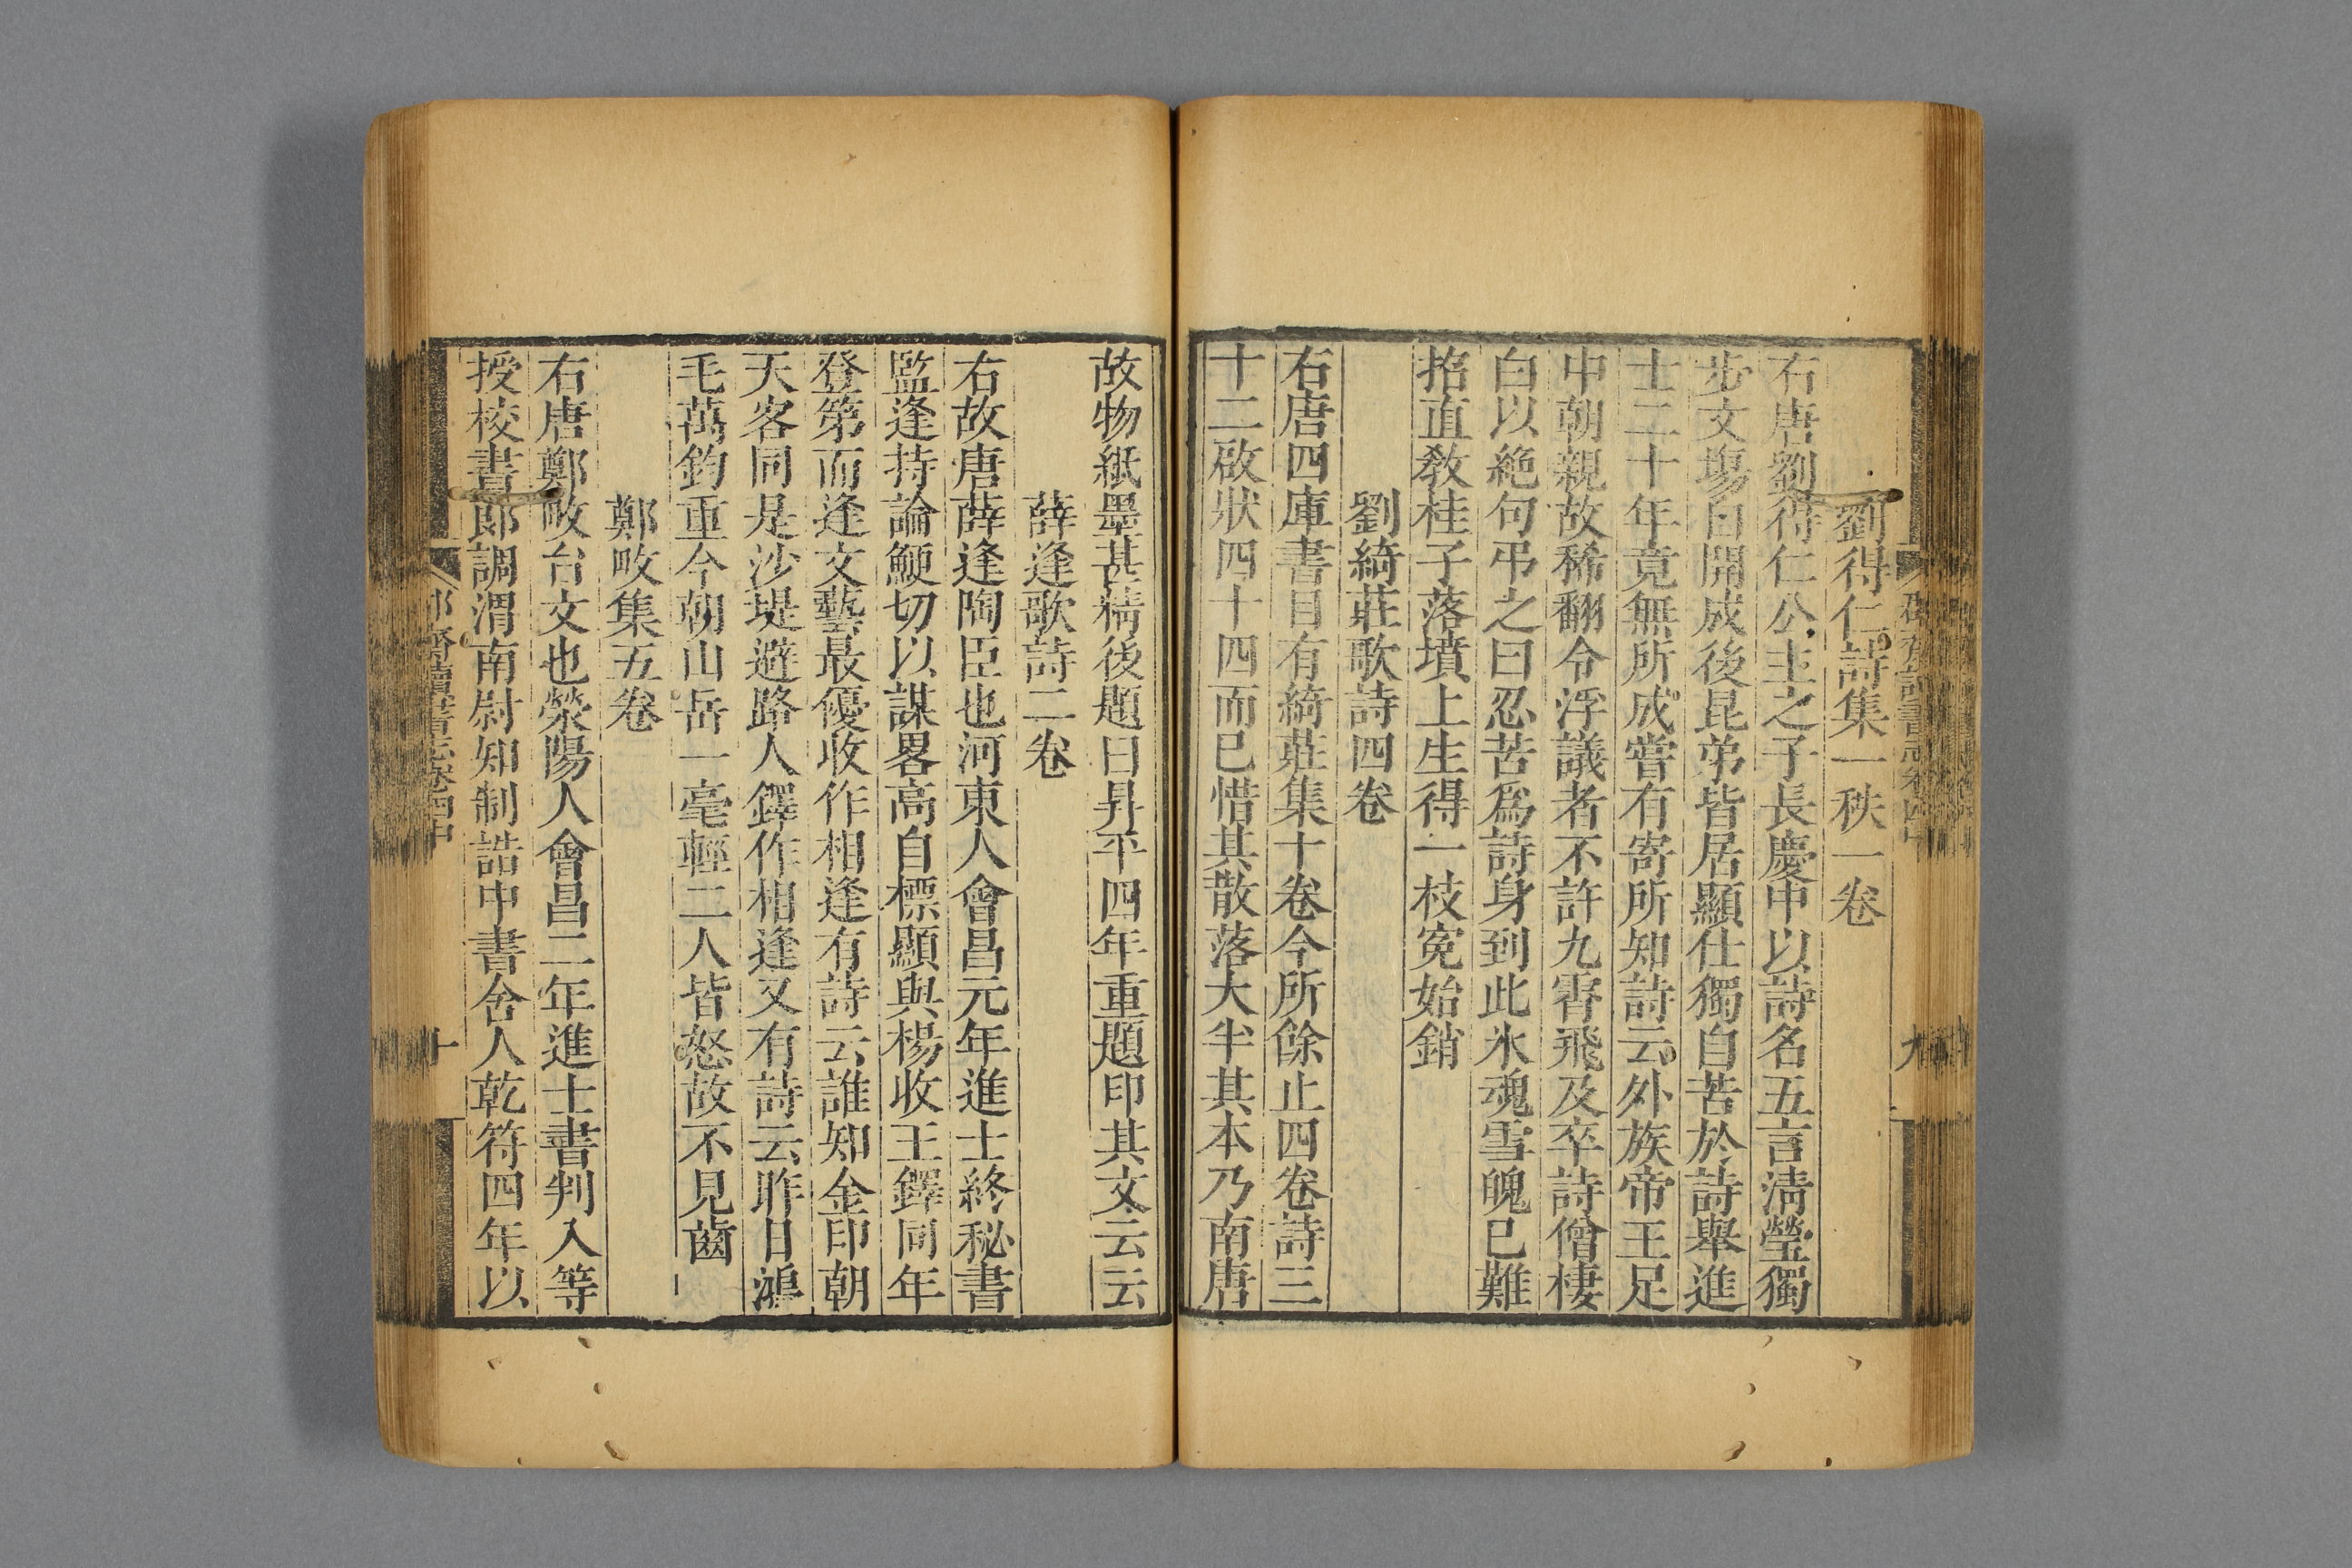 劉得仁詩集一秩一卷
右唐劉得仁公主之子長慶中以詩名五言淸瑩獨
步文塲自開成後昆弟皆居顯仕獨自苦於詩舉進
士二十年竟無所成嘗有寄所知詩云外族帝王足
中朝親故稀翻令浮議者不許九霄飛及卒詩僧棲
白以絶句弔之曰忍苦爲詩身到此氷魂雪魄已難
招直敎桂子落墳上生得一枝寃始銷
劉綺莊歌詩四卷
右唐四庫書目有綺莊集十卷今所餘止四卷詩三
十二啟狀四十四而已惜其散落大半其本乃南唐
九
故物紙墨甚精後題曰昇平四年重題印其文云云
薛逢歌詩二卷
右故唐薛逢陶臣也河東人會昌元年進士終秘書
監逢持論鯁切以謀畧高自標顯與楊收王鐸同年
登第而逢文藝最優收作相逢有詩云誰知金印朝
天客同是沙堤避路人鐸作相逢又有詩云昨日鴻
毛萬鈞重今朝山岳一毫輕二人皆怒故不見齒
鄭畋集五卷
右唐鄭畋台文也滎陽人會昌二年進士書判入等
授校書郎調渭南尉知制誥中書舍人乾符四年以
郡齋讀書志卷四中
十